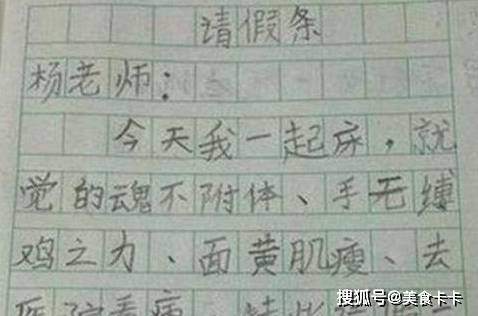 请假条
杨老师：
今天我一起床，就
觉的魂不附体、手无缚
鸡之力、面黄肌瘦、去
医院看病
搜狐号@美食卡卡